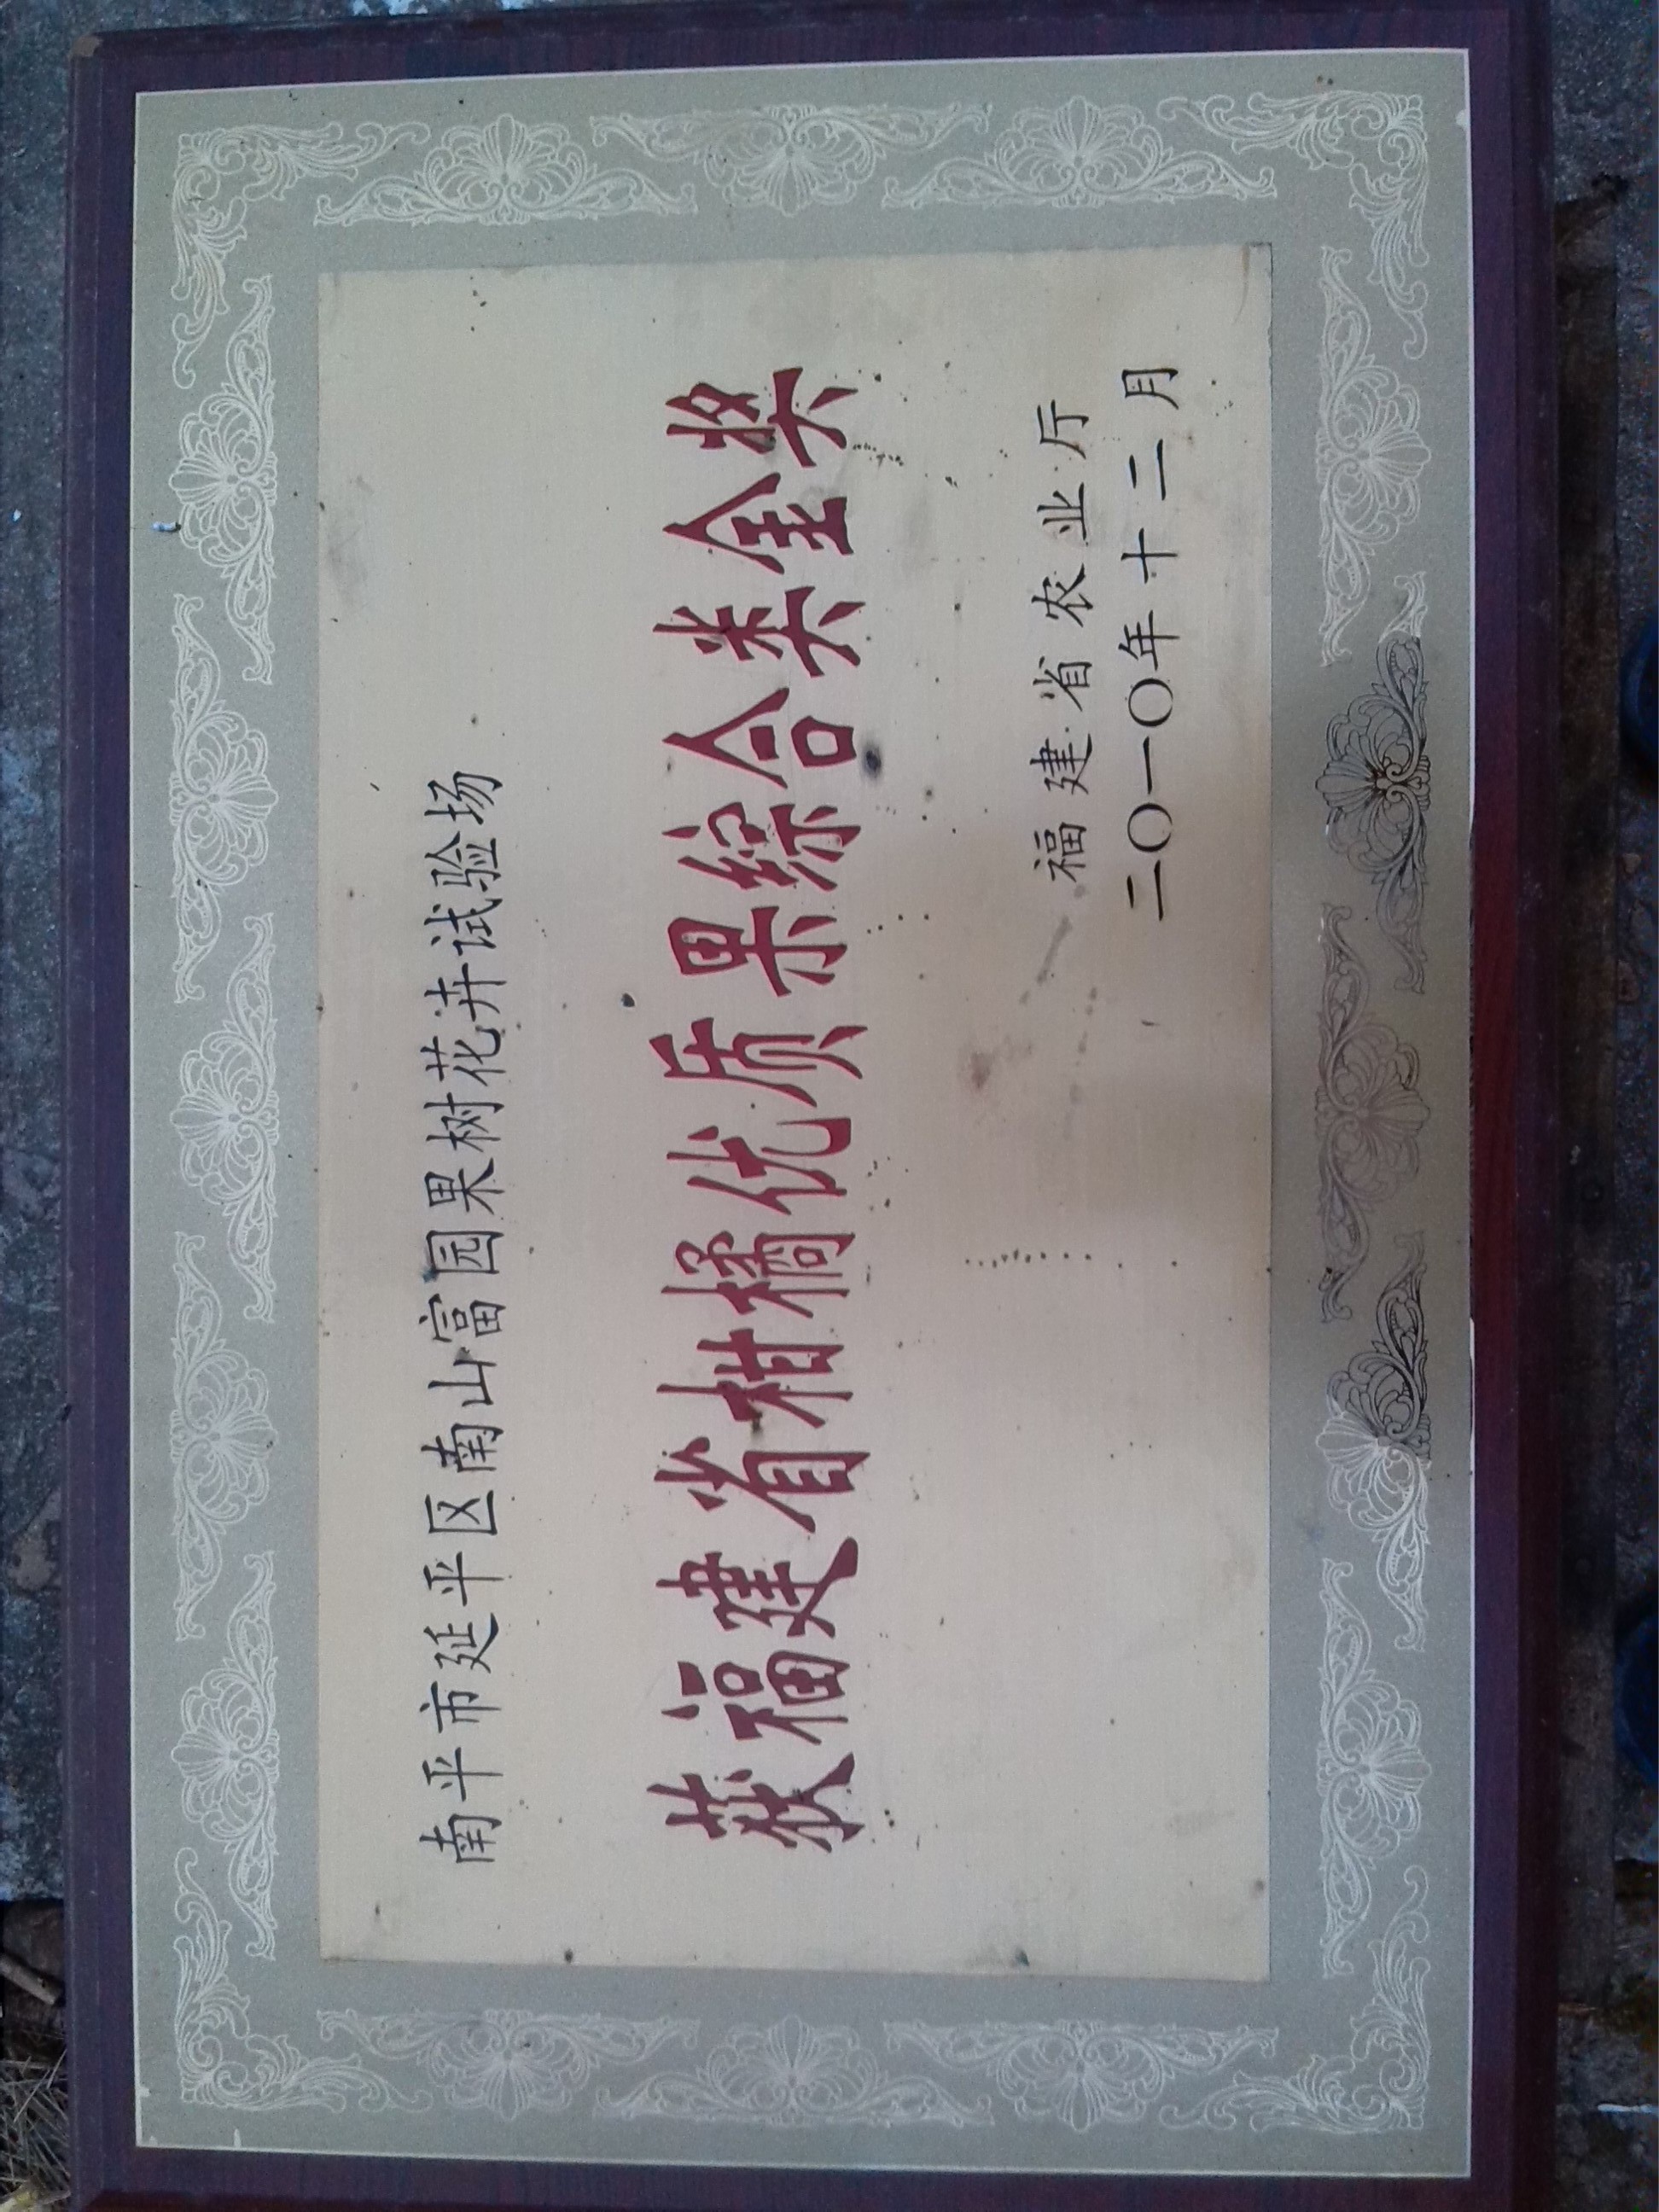 南平市延平区南山富园果树花卉试验场
获福建省柑橘优质果综合类金奖
福建省农业厅
二〇一〇年十二月